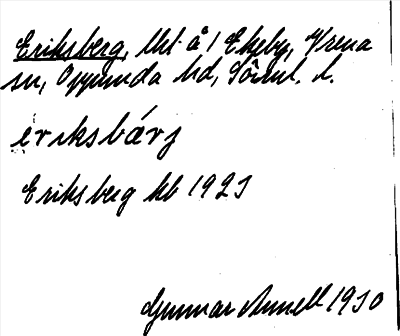 Eriksberg, lht å 1 Ekeby, Vrena
sn, Oppunda hd, Söderml. l.
eriksbärj
Eriksberg kb 1925
Gunnar Annell 1930